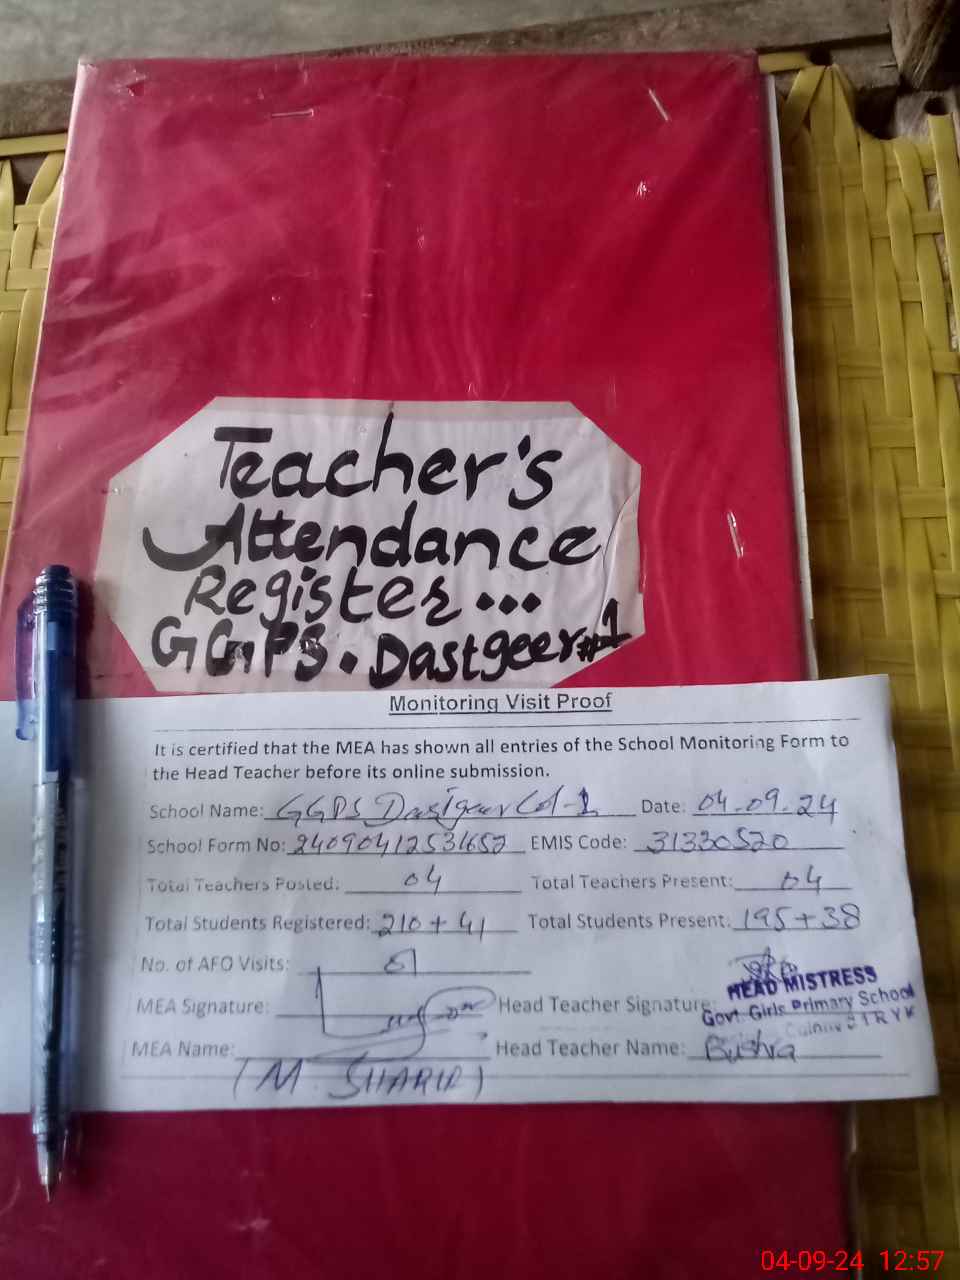 Teacher's
Attendance
Register...
GGPS. Dastgeer #1
Monitoring Visit Proof
It is certified that the MEA has shown all entries of the School Monitoring Form to
the Head Teacher before its online submission.
School Name: GGPS Dastgeer Col-1 Date: 04-09-24
School Form No: 24090412531652 EMIS Code: 31330520
Total Teachers Posted: 04 Total Teachers Present: 04
Total Students Registered: 210+41 Total Students Present: 195+38
No. of AFO Visits: 01
MEA Signature: Head Teacher Signature:
HEAD MISTRESS
Govt. Girls Primary School
R Y K
MEA Name: Head Teacher Name: Bushra
(M. SHARIF)
04-09-24 12:57